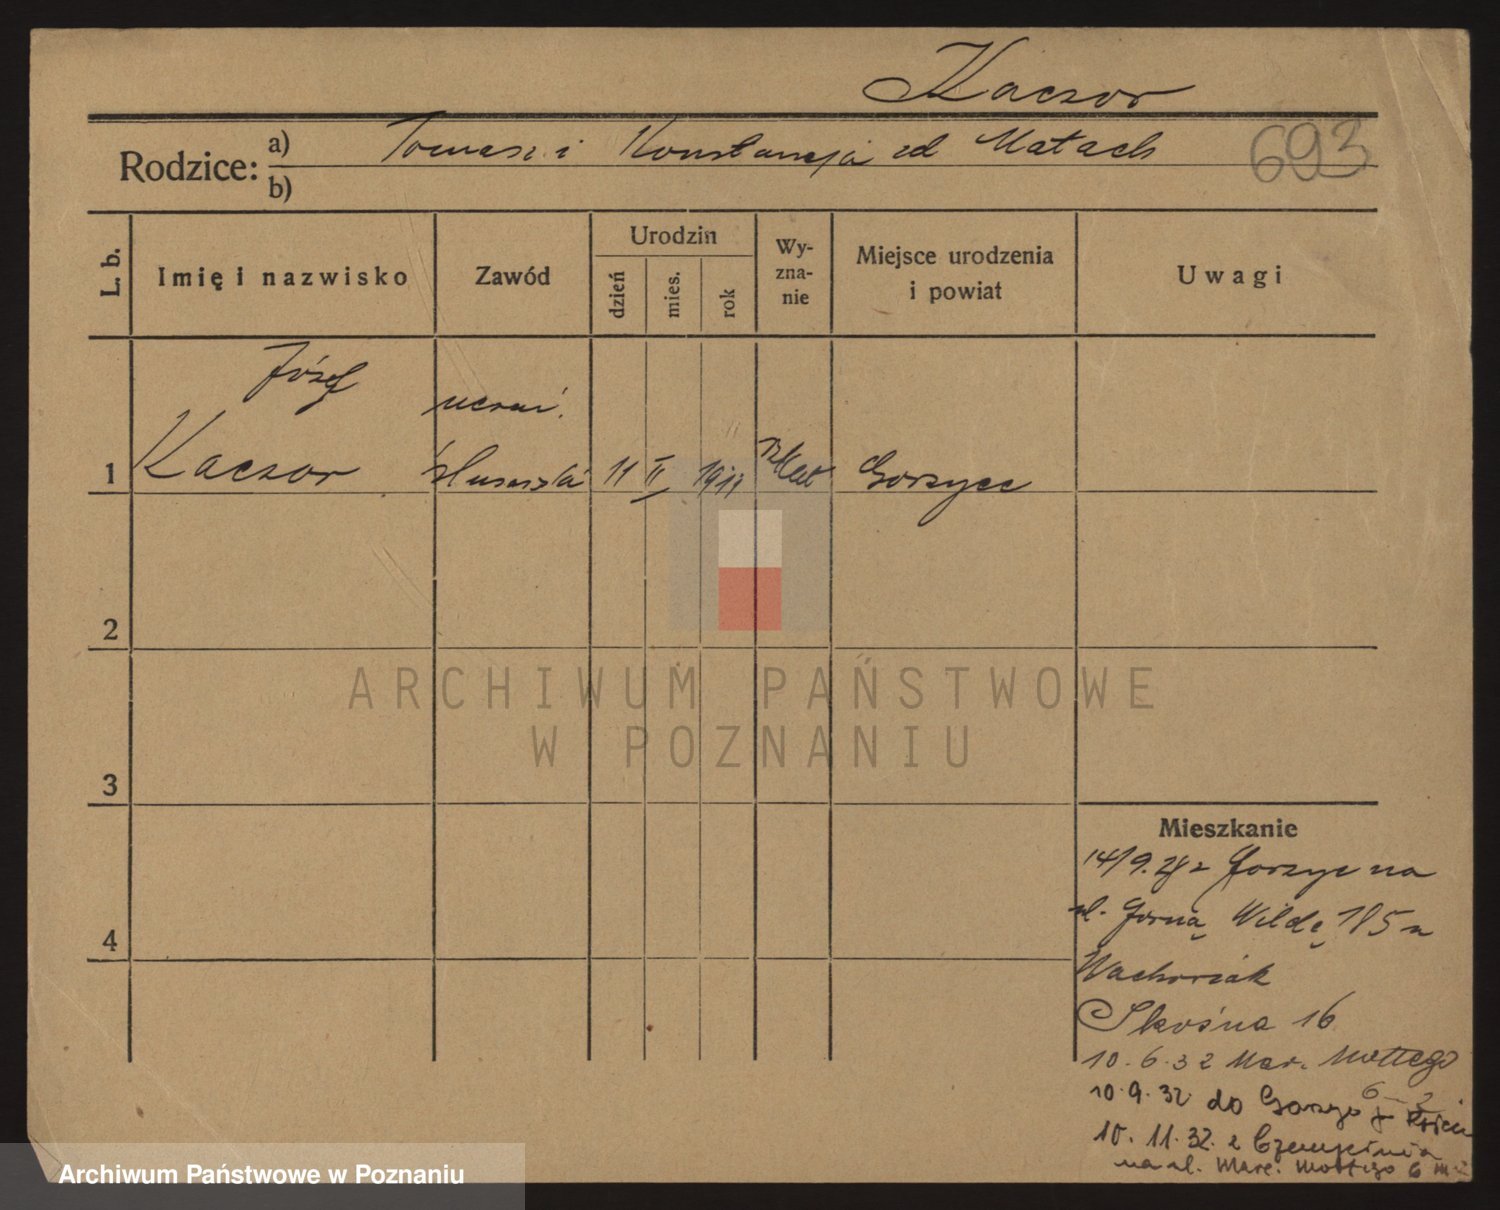 Kaczor
Rodzice: a) Tomasz i Konstancja zd Matach
693
b)
L. b.
Imię i nazwisko
Zawód
Urodzin
dzień
mies.
rok
Wy-
zna-
nie
Miejsce urodzenia
i powiat
Uwagi
Józef
uczeń.
1 Kaczor ślusarski 11 II 1911 Rz Kat Gorzyce
2
3
4
ARCHIWUM PAŃSTWOWE
W POZNANIU
Mieszkanie
14/9. z Gorzyc na
ul. Górną Wildę 185 u
Wachowiak
Skośna 16
10.6.32 Mar. Mottego
6
10.9.32 do Gorzyc
10.11.32. z
na ul. Marc. Mottego 6 m
Archiwum Państwowe w Poznaniu